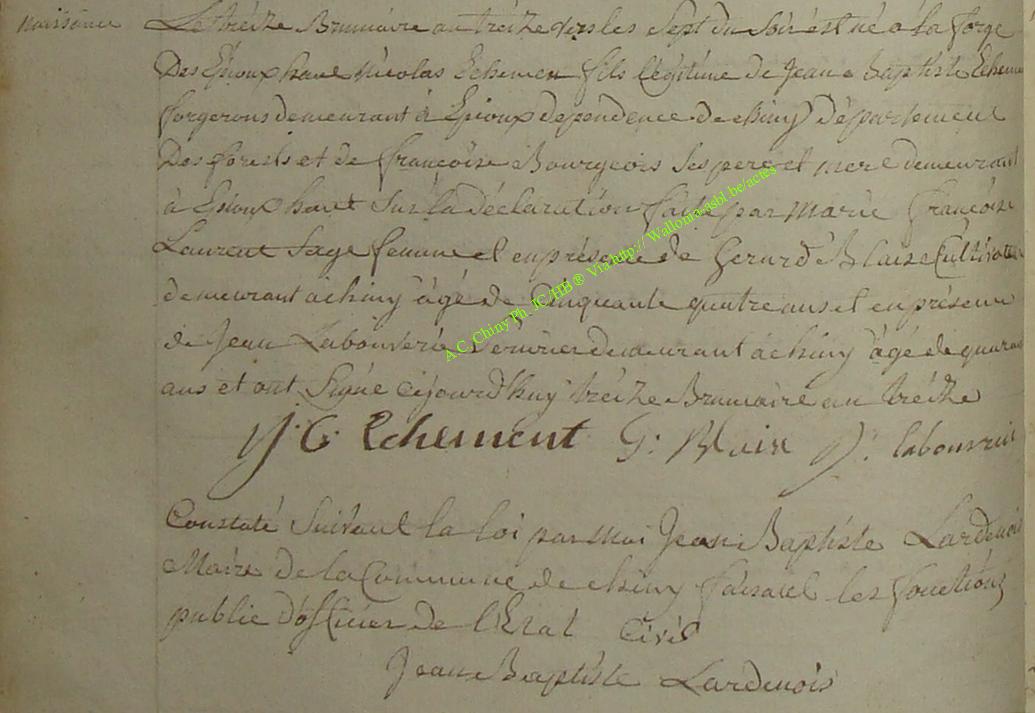 naissance
Le treize Brumaire an treize vers les Sept du Soir est né a la forge
Des Epioux haut Nicolas Echemen fils légitime de Jean Baptiste Echemen
forgerons demeurant à Epioux dependence de chiny Département
Des forests et de françoise Bourgeois Ses pere et mere demeurant
à Epioux haut Sur la déclaration faite par Marie françoise
Laurent Sage femme et en présence de Gerard Blaise Cultivateur
demeurant a chiny âgé de Cinquante quatre ans et en présence
de Jean Labouverie demeurant a chiny âgé de
ans et ont Signé cejourd'huy treize Brumaire an treize
J: B Echement G: Blaix J: labouverie
Constaté Suivant la loi par moi Jean Baptiste Lardenois
Maire de la Commune de chiny faisant les fonctions
public d'officier de l'Etat Civil
Jean Baptiste Lardenois
A.C. Chiny Ph. JC/HB® Via http://Wallonia-asbl.be/actes